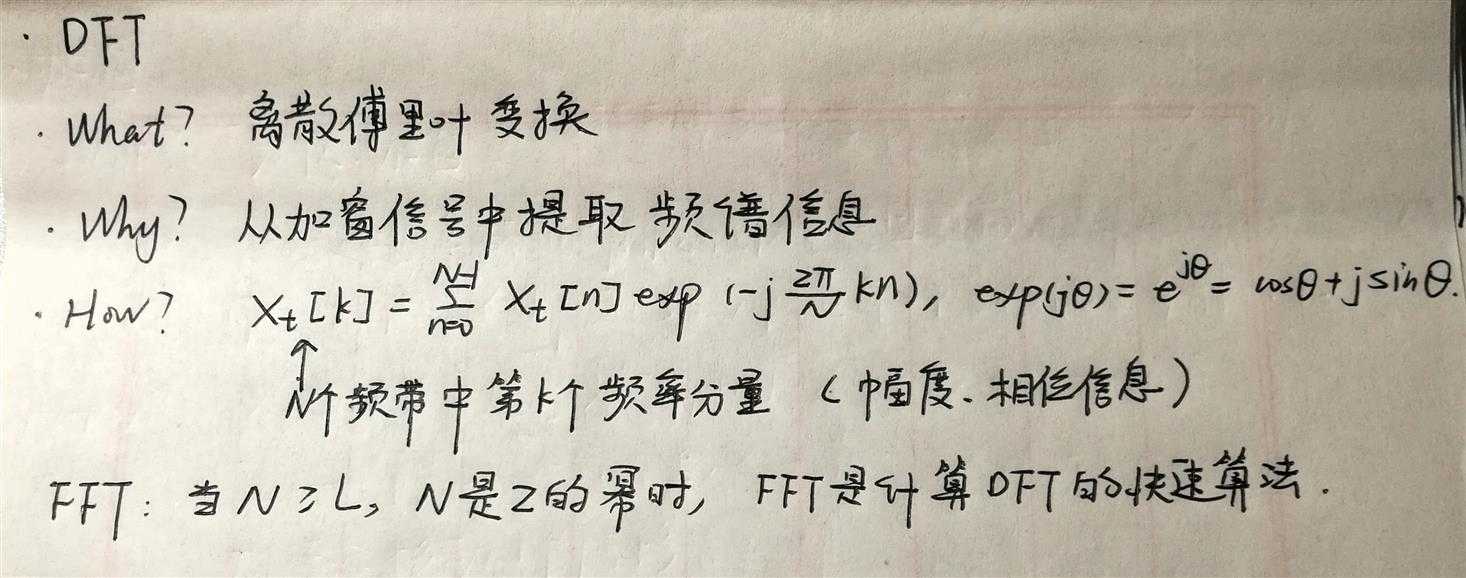 · DFT
· What? 离散傅里叶变换
· Why? 从加窗信号中提取频谱信息
· How? X_t[k] = \sum_{n=0}^{N-1} x_t[n] exp(-j \frac{2π}{N} kn), exp(jθ) = e^{jθ} = cosθ + j sinθ.
↑
N个频带中第k个频率分量 (幅度、相位信息)
FFT: 当 N ≥ L, N是2的幂时, FFT是计算DFT的快速算法.